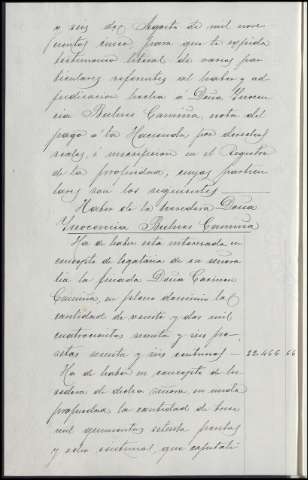 y seis de Agosto de mil nove
cientos cinco, para que se expida
testimonio literal de varios par
ticulares referentes al haber y ad
judicacion hecha a Doña Ynocen
cia Bulnes Camiña, nota del
pago a la Hacienda por derechos
reales, é inscripcion en el Registro
de la propiedad, cuyos particu
lares son los siguientes
Haber de la heredera Doña
Ynocencia Bulnes Camiña
Ha de haber esta interesada en
concepto de legataria de su seño
tia la finada Doña Carmen
Camiña, en pleno dominio la
cantidad de veinte y dos mil
cuatrocientas sesenta y seis pe
setas sesenta y seis centimos — 22.466 66
Ha de haber en concepto de he
redera de dicha señora en nuda
propiedad la cantidad de trece
mil quinientas setenta pesetas
y ocho centimos, que capitali